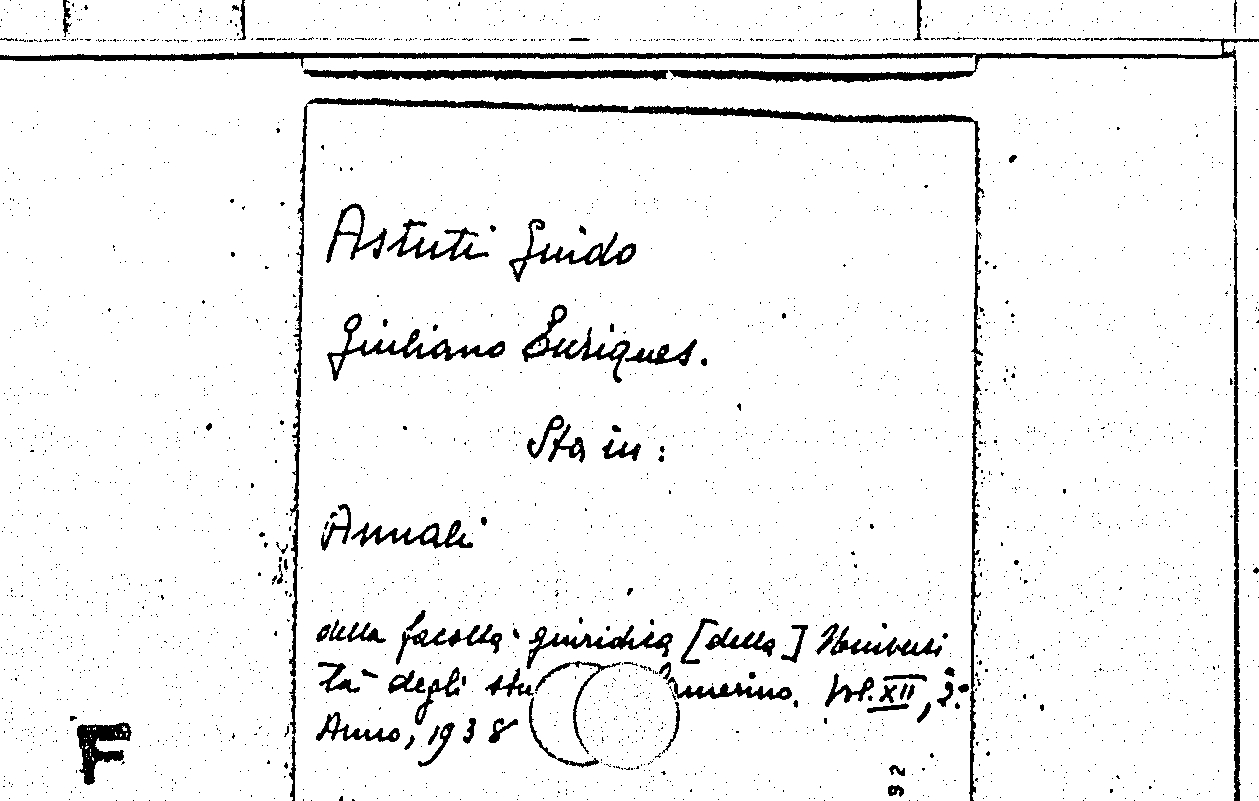 Astuti Guido
Giuliano Enriques.
Sta in:
Annali
della facoltà giuridica [della] Universi
tà degli stu amerino. Vol. XII, 2.°
Anno, 1938
F
92